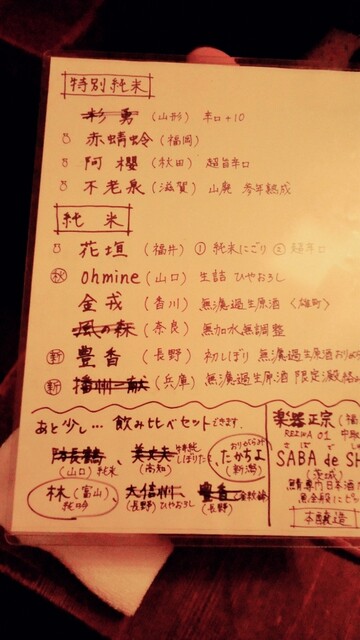 特別純米
杉勇 (山形) 辛口+10
赤蜻蛉 (福岡)
阿櫻 (秋田) 超旨辛口
不老泉 (滋賀) 山廃 参年熟成
純米
花垣 (福井) ① 純米にごり ② 超辛口
秋 ohmine (山口) 生詰 ひやおろし
金戎 (香川) 無濾過生原酒 〈雄町〉
風の森 (奈良) 無加水無調整
新 豊香 (長野) 初しぼり 無濾過生原酒 おりがらみ
新 播州一献 (兵庫) 無濾過生原酒 限定
あと少し… 飲み比べセットできます。
防長鶴 (山口) 純米
美丈夫 (高知) 特純 しぼりたて
おりがらみ たかちよ (新潟)
林 (富山) 純吟
大信州 (長野) ひやおろし
豊香 (長野)
楽器正宗 (福
REIWA 01 中取
さば で
SABA de SH
(茨城)
鯖専門日本酒
本醸造